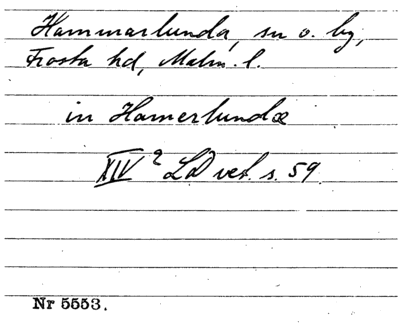 Hammarlunda, sn o. by,
Frosta hd, Malm. l.
in Hamerlundæ
XIV 2 LD vet. s. 59.
Nr 5553.